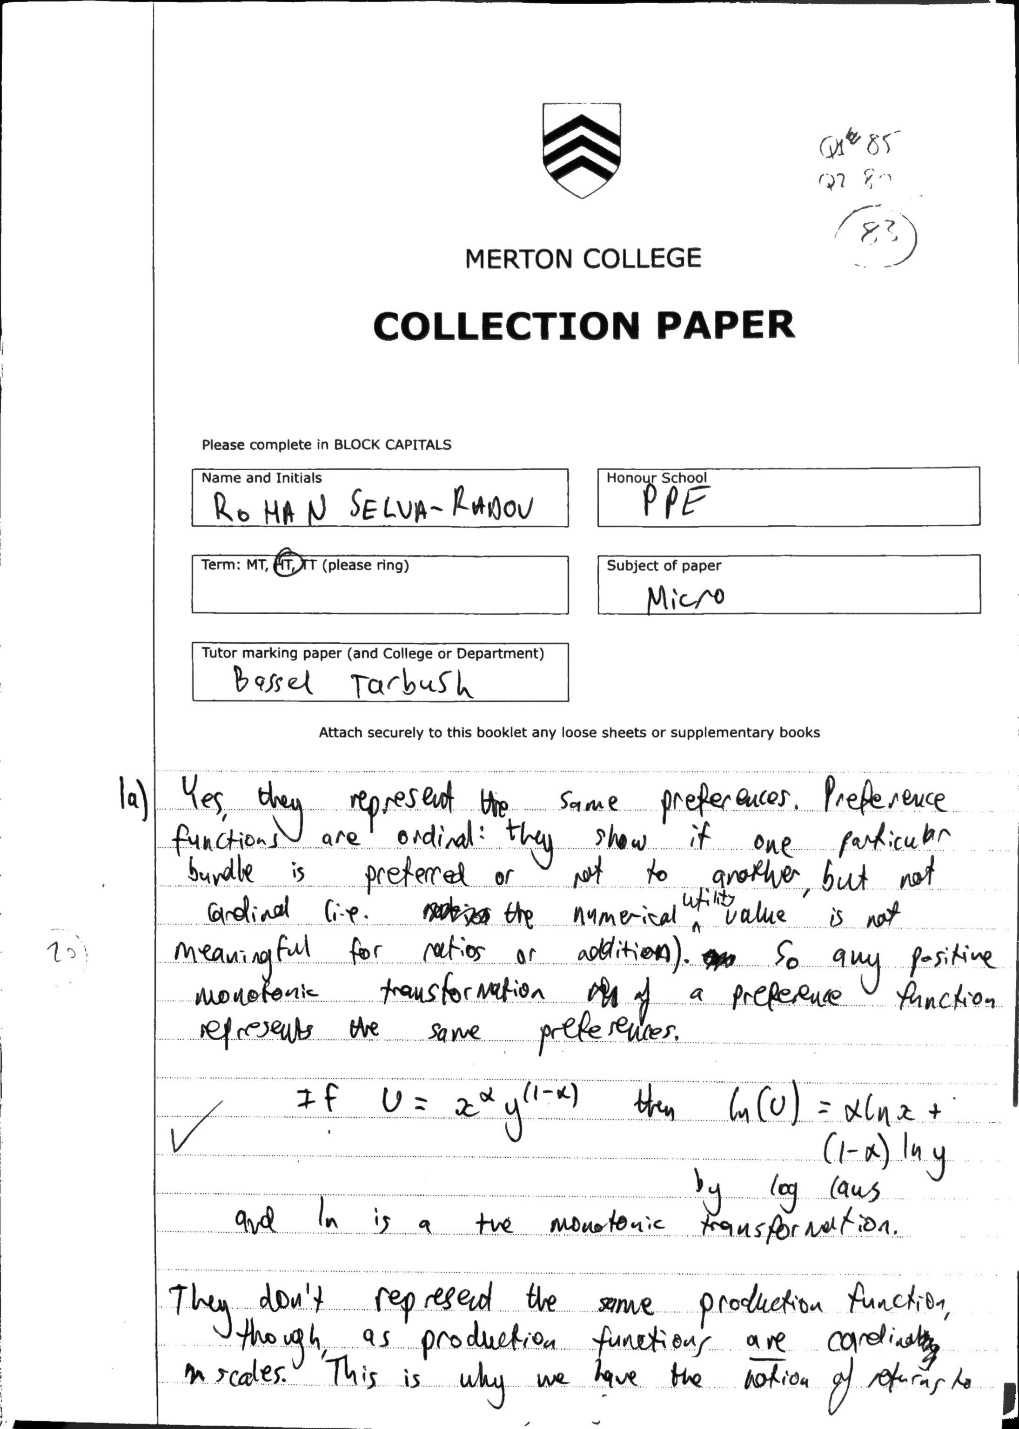 Q1 85
Q2 80
83
MERTON COLLEGE
COLLECTION PAPER
Please complete in BLOCK CAPITALS
Name and Initials
ROHAN SELVA-RADOV
Honour School
PPE
Term: MT, HT, TT (please ring)
Subject of paper
Micro
Tutor marking paper (and College or Department)
Bassel Tarbush
Attach securely to this booklet any loose sheets or supplementary books
1a) Yes, they represent the same preferences. Preference
functions are ordinal: they show if one particular
bundle is preferred or not to another, but not
cardinal (i.e. the numerical utility value is not
meaningful for ratios or addition). So any positive
20
monotonic transformation of a preference function
represents the same preferences.
If U = x^α y^(1-α) then ln(U) = α ln x +
(1-α) ln y
by log laws
and ln is a +ve monotonic transformation.
They don't represent the same production function,
though, as production functions are cardinal
scales. This is why we have the notion of returns to